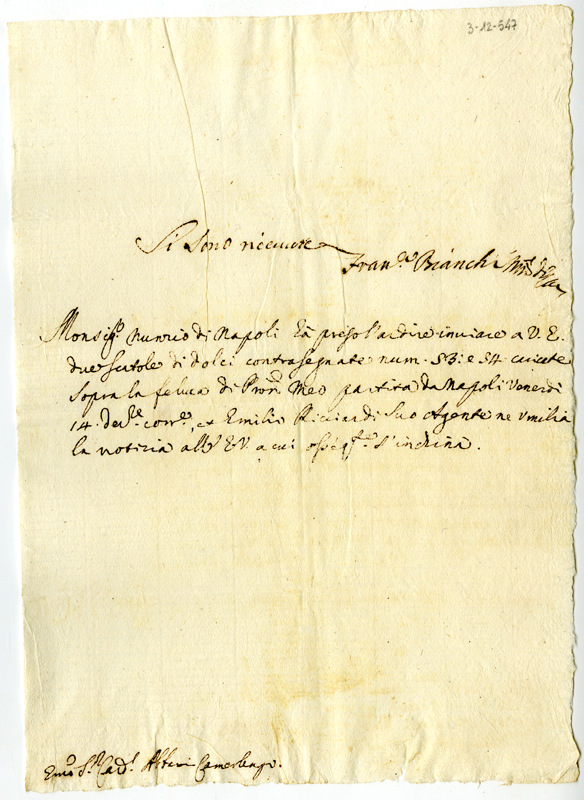 3-12-547
Si sono riceuute
Fran.co Bianchi
Monsig.r Nunzio di Napoli hà preso l'ardire inuiare a V. E.
due scatole di dolci contrasegnate num. 53: e 54 caricate
sopra la feluca di Pron. Meo partita da Napoli Venerdi
14. del corr.e, et Emilio Ricciardi suo Agente ne vmilia
la notizia all' E.V. a cui s'inchina.
Emo S.r Card.l Altieri Camerlengo.